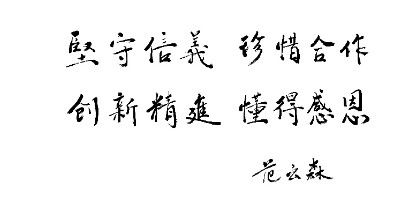 堅守信義 珍惜合作
创新精進 懂得感恩
范云森